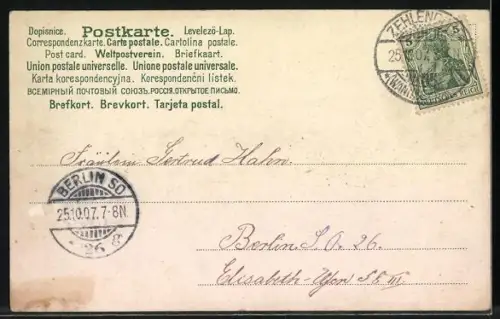 Dopisnice. Postkarte. Levelező-Lap.
Correspondenzkarte. Carte postale. Cartolina postale.
Post card. Weltpostverein. Briefkaart.
Union postale universelle. Unione postale universale.
Karta korespondencyjna. Korespondenční lístek.
ВСЕМІРНЫЙ ПОЧТОВЫЙ СОЮЗЪ. РОССІЯ. ОТКРЫТОЕ ПИСЬМО.
Brefkort. Brevkort. Tarjeta postal.
ZEHLEND
25.10.07
5 5
REICH
Fräulein Gertrud Hahn
BERLIN SO
25.10.07. 7-8N.
26 g
Berlin S.O. 26.
Elisabeth-Ufer 58 III